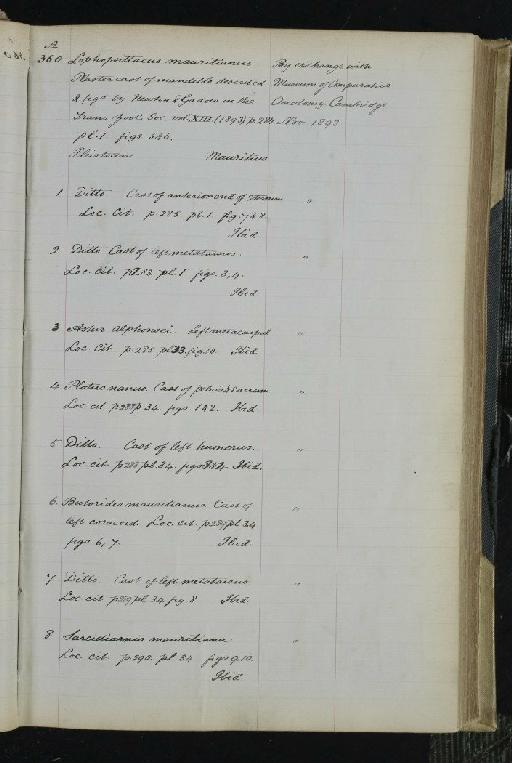 A
360 Lophopsittacus mauritianus By exchange with
Plaster cast of mandible described Museum of Comparative
& figd by Newton & Gadow in the Zoology Cambridge
Trans. Zool. Soc. vol. XIII (1893) p. 284 Nov 1893
pl. 1 figs
Pleistocene Mauritius
1 Ditto Cast of anterior end of sternum "
Loc. Cit. p. 285 pl. 1 fig
Ibid
2 Ditto Cast of left metatarsus. "
Loc. Cit. pl. 1 figs. 3, 4.
Ibid
3 Astur alphonsi. Left metacarpal "
Loc. Cit. p. 285 pl. 33, fig. 10. Ibid
4 Plotus nanus. Cast of pelvis & sacrum "
Loc. cit. p. 289 pl. 34. figs 1 & 2. Ibid
5 Ditto. Cast of left humerus. "
Loc. cit. pl. 34. figs Ibid.
6 Butorides mauritianus Cast of "
left coracoid. Loc. cit. p. 289 pl 34
figs 6, 7. Ibid
7 Ditto. Cast of left metatarsus "
Loc. cit. pl. 34. fig. 8 Ibid
8 Sarcidiornis mauritianus "
Loc. cit. p. 290. pl 34 figs 9, 10.
Ibid